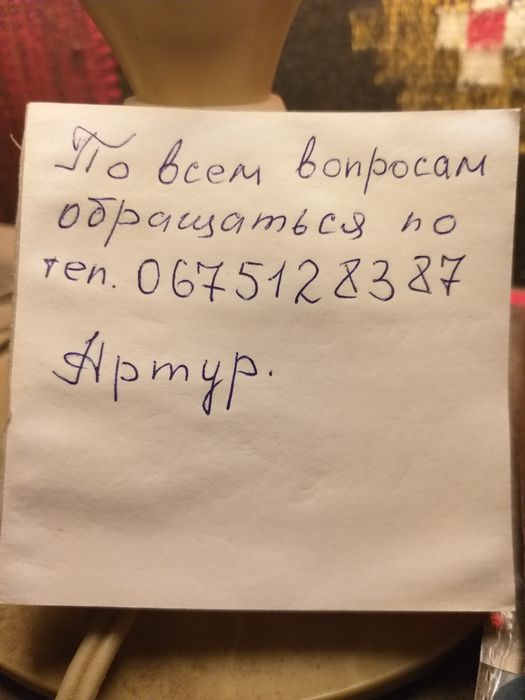 По всем вопросам
обращаться по
тел. 0675128387
Артур.